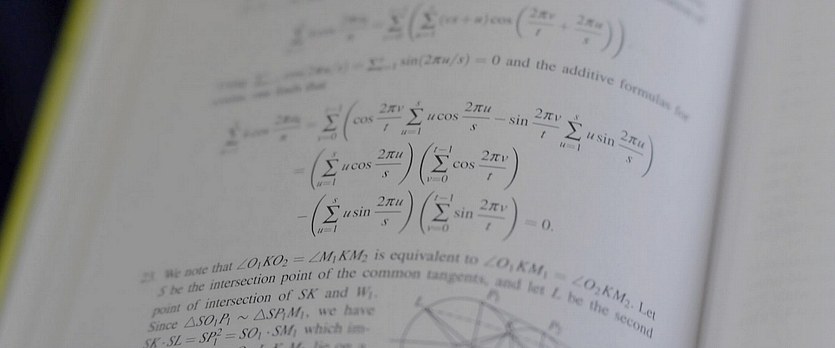 = ∑ ( ∑ (vs + u) cos ( 2πv/t + 2πu/s ) )
sin(2πu/s) = 0 and the additive formulas for
= ∑_{v=0}^{t−1} ( cos 2πv/t ∑_{u=1}^{s} u cos 2πu/s − sin 2πv/t ∑_{u=1}^{s} u sin 2πu/s )
= ( ∑_{u=1}^{s} u cos 2πu/s ) ( ∑_{v=0}^{t−1} cos 2πv/t )
− ( ∑_{u=1}^{s} u sin 2πu/s ) ( ∑_{v=0}^{t−1} sin 2πv/t ) = 0.
We note that ∠O₁KO₂ = ∠M₁KM₂ is equivalent to ∠O₁KM₁ = ∠O₂KM₂. Let
S be the intersection point of the common tangents, and let L be the second
point of intersection of SK and W₁.
Since △SO₁P₁ ∼ △SP₁M₁, we have
SK · SL = SP₁² = SO₁ · SM₁ which im-
L